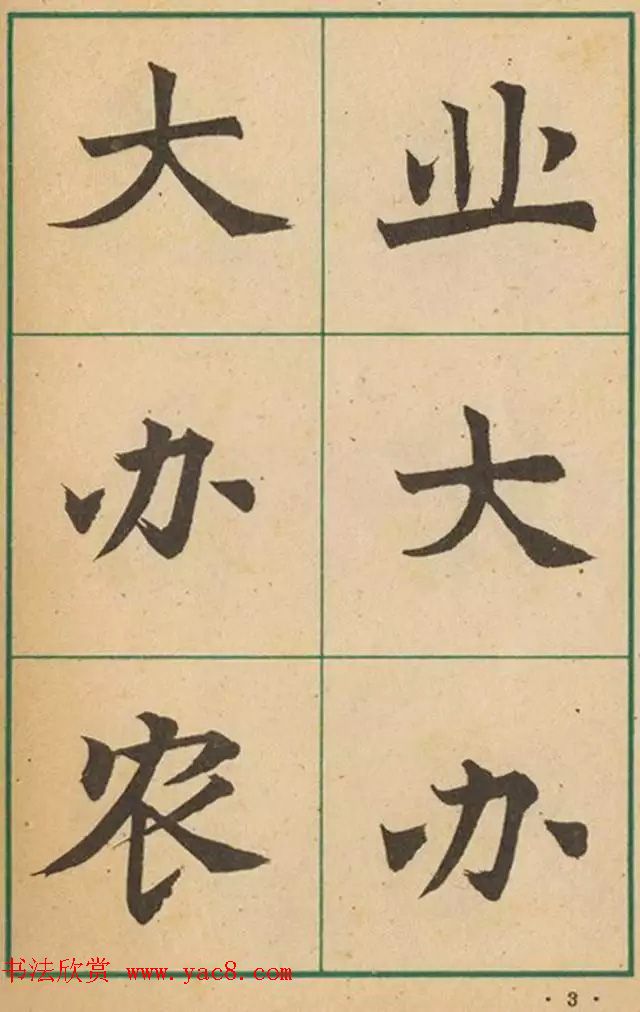 业大办
大办农
书法欣赏 www.yac8.com
·3·